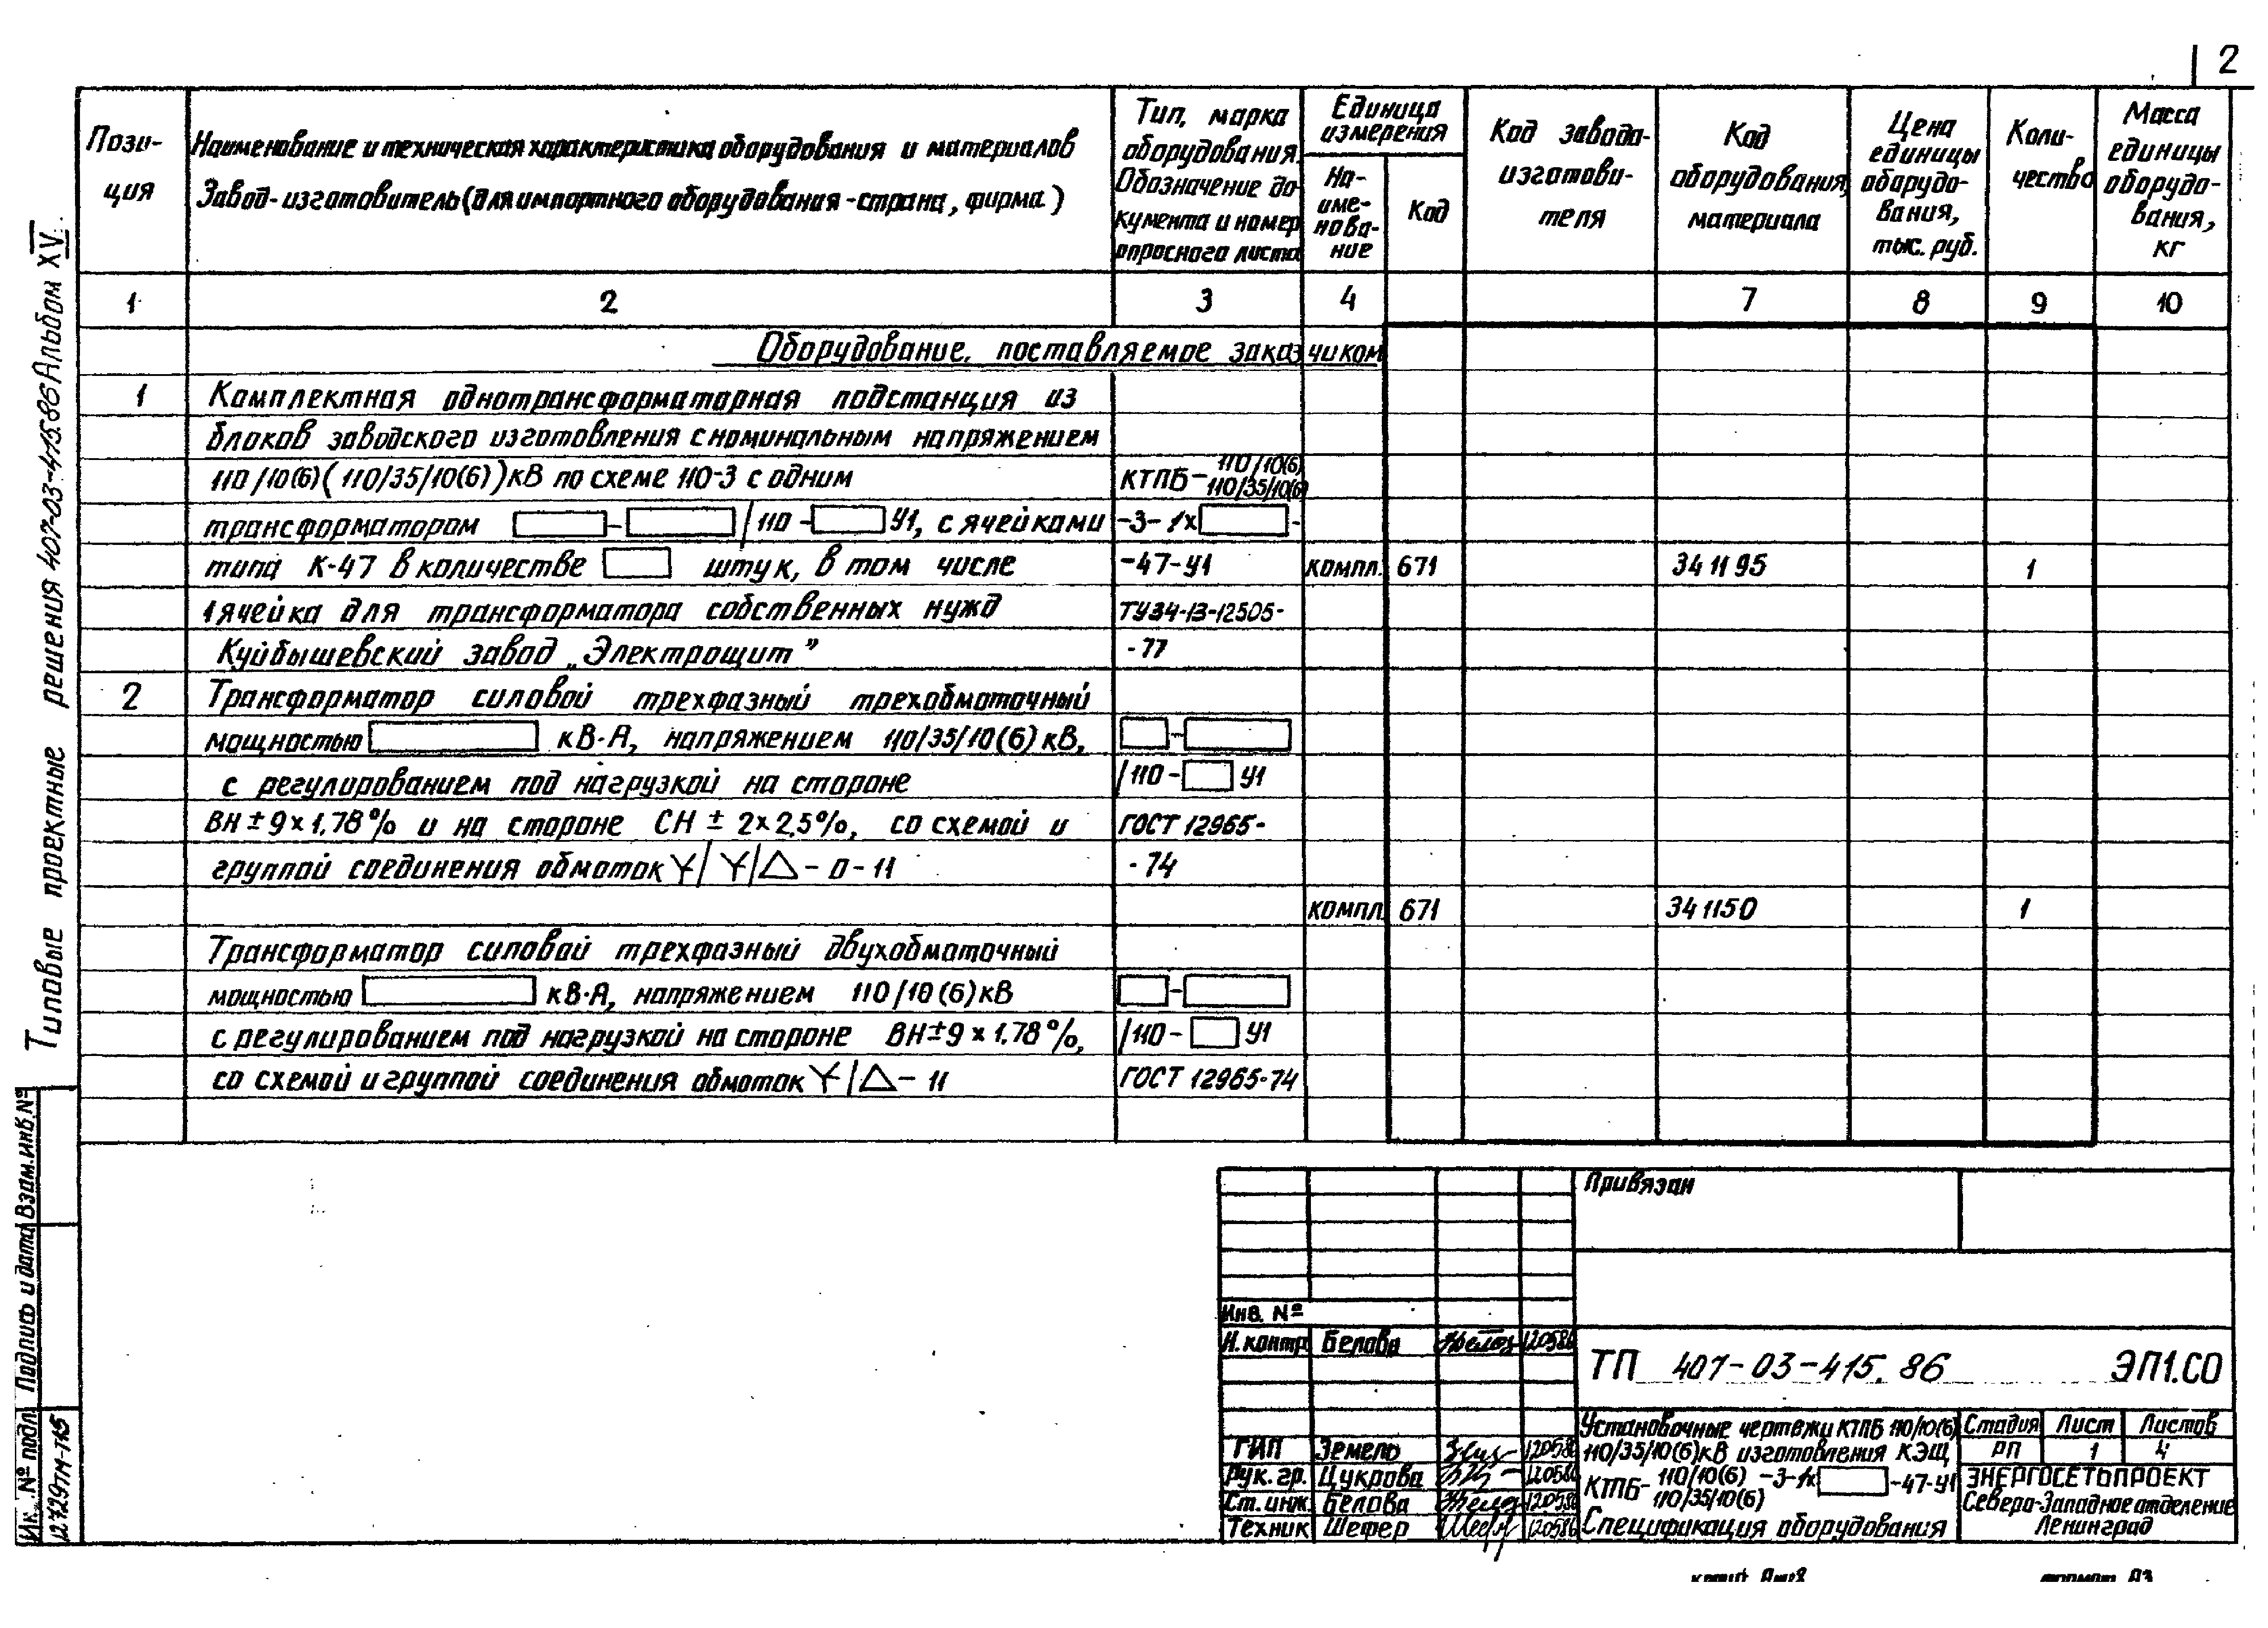 2
Пози-
ция
Наименование и техническая характеристика оборудования и материалов
Завод-изготовитель (для импортного оборудования - страна, фирма)
Тип, марка
оборудования.
Обозначение до-
кумента и номер
опросного листа
Единица
измерения
На-
име-
нова-
ние
Код
Код завода-
изготови-
теля
Код
оборудования,
материала
Цена
единицы
оборудо-
вания,
тыс. руб.
Коли-
чество
Масса
единицы
оборудо-
вания,
кг
1 2 3 4 7 8 9 10
Оборудование, поставляемое заказчиком
1 Комплектная однотрансформаторная подстанция из
блоков заводского изготовления с номинальным напряжением
110/10(6)(110/35/10(6))кВ по схеме 110-3 с одним КТПБ-110/10(6) 110/35/10(6)
трансформатором - /110 - У1, с ячейками -3-1х -
типа К-47 в количестве штук, в том числе -47-У1 компл. 671 341195 1
1 ячейка для трансформатора собственных нужд ТУ34-13-12505-
Куйбышевский завод „Электрощит" -77
2 Трансформатор силовой трехфазный трехобмоточный
мощностью кВ·А, напряжением 110/35/10(6) кВ, -
с регулированием под нагрузкой на стороне /110- У1
ВН ± 9 х 1,78% и на стороне СН ± 2х2,5%, со схемой и ГОСТ 12965-
группой соединения обмоток Y/Y/△-0-11 -74
компл. 671 341150 1
Трансформатор силовой трехфазный двухобмоточный
мощностью кВ·А, напряжением 110/10(6)кВ -
с регулированием под нагрузкой на стороне ВН±9х1,78%, /110- У1
со схемой и группой соединения обмоток Y/△-11 ГОСТ 12965-74
Типовые проектные решения 407-03-415.86 Альбом XV.
Взам.инв.№
Подпись и дата
Инв.№ подл.
12729тм-т15
Привязан
Инв. №
Н.контр. Белова 120586
ТП 407-03-415.86 ЭП1.СО
ГИП Земело 120586
Рук. гр. Цукрова 120586
Ст. инж. Белова 120586
Техник Шефер 120586
Установочные чертежи КТПБ 110/10(6)
110/35/10(6)кВ изготовления КЭЩ
КТПБ-110/10(6) 110/35/10(6) -3-1х -47-У1
Спецификация оборудования
Стадия Лист Листов
РП 1 4
ЭНЕРГОСЕТЬПРОЕКТ
Северо-Западное отделение
Ленинград
формат А3